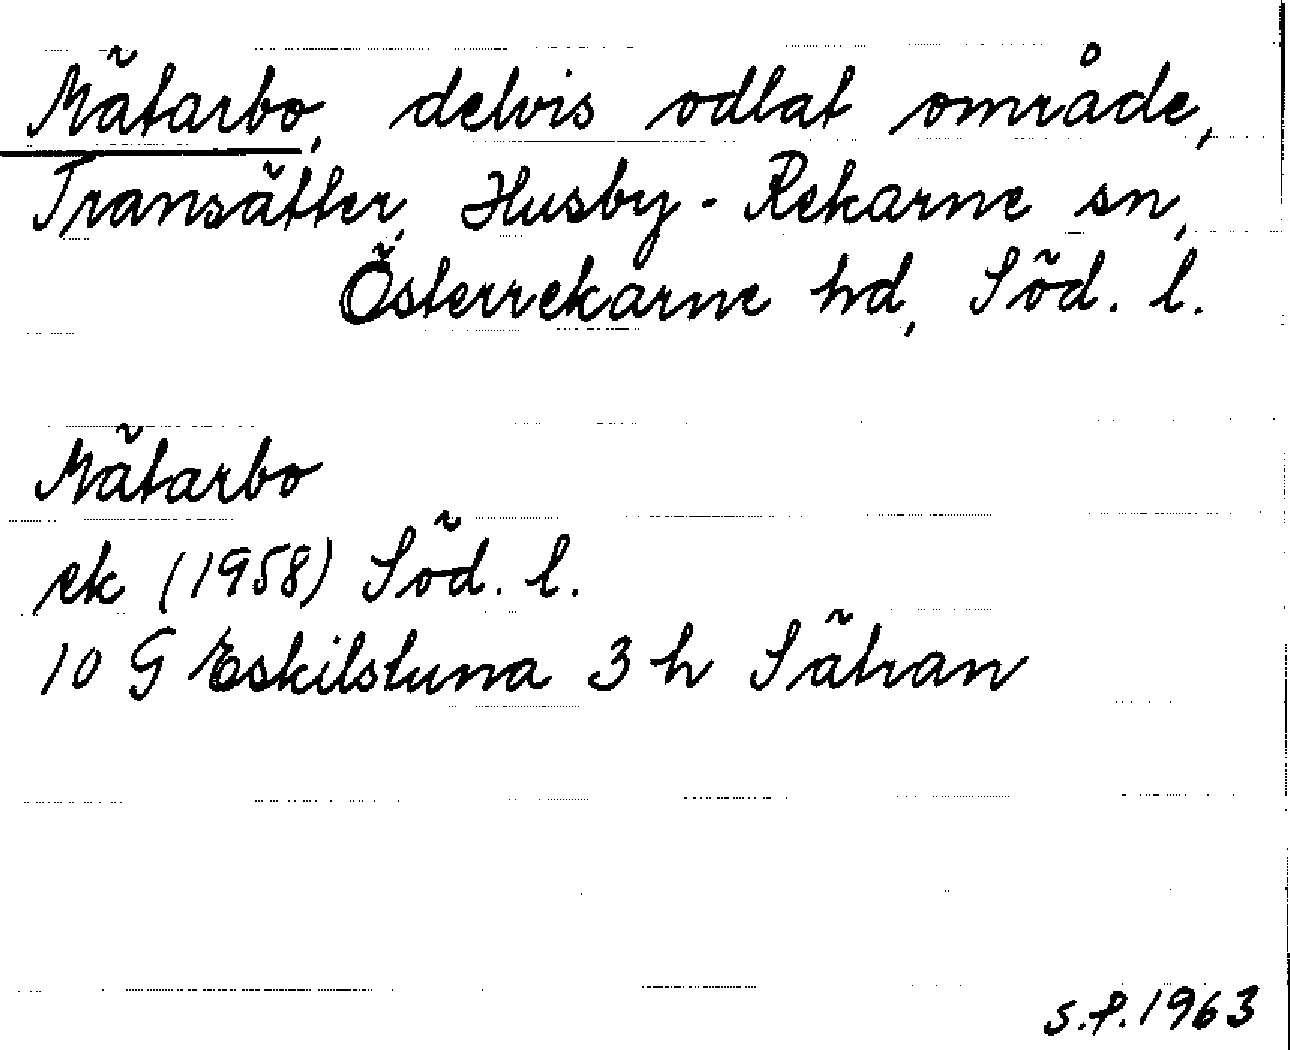 Mätarbo, delvis odlat område,
Transätter, Husby-Rekarne sn,
Österrekarne hd, Söd. l.
Mätarbo
ek (1958) Söd. l.
10 G Eskilstuna 3 h Sätran
S.P. 1963